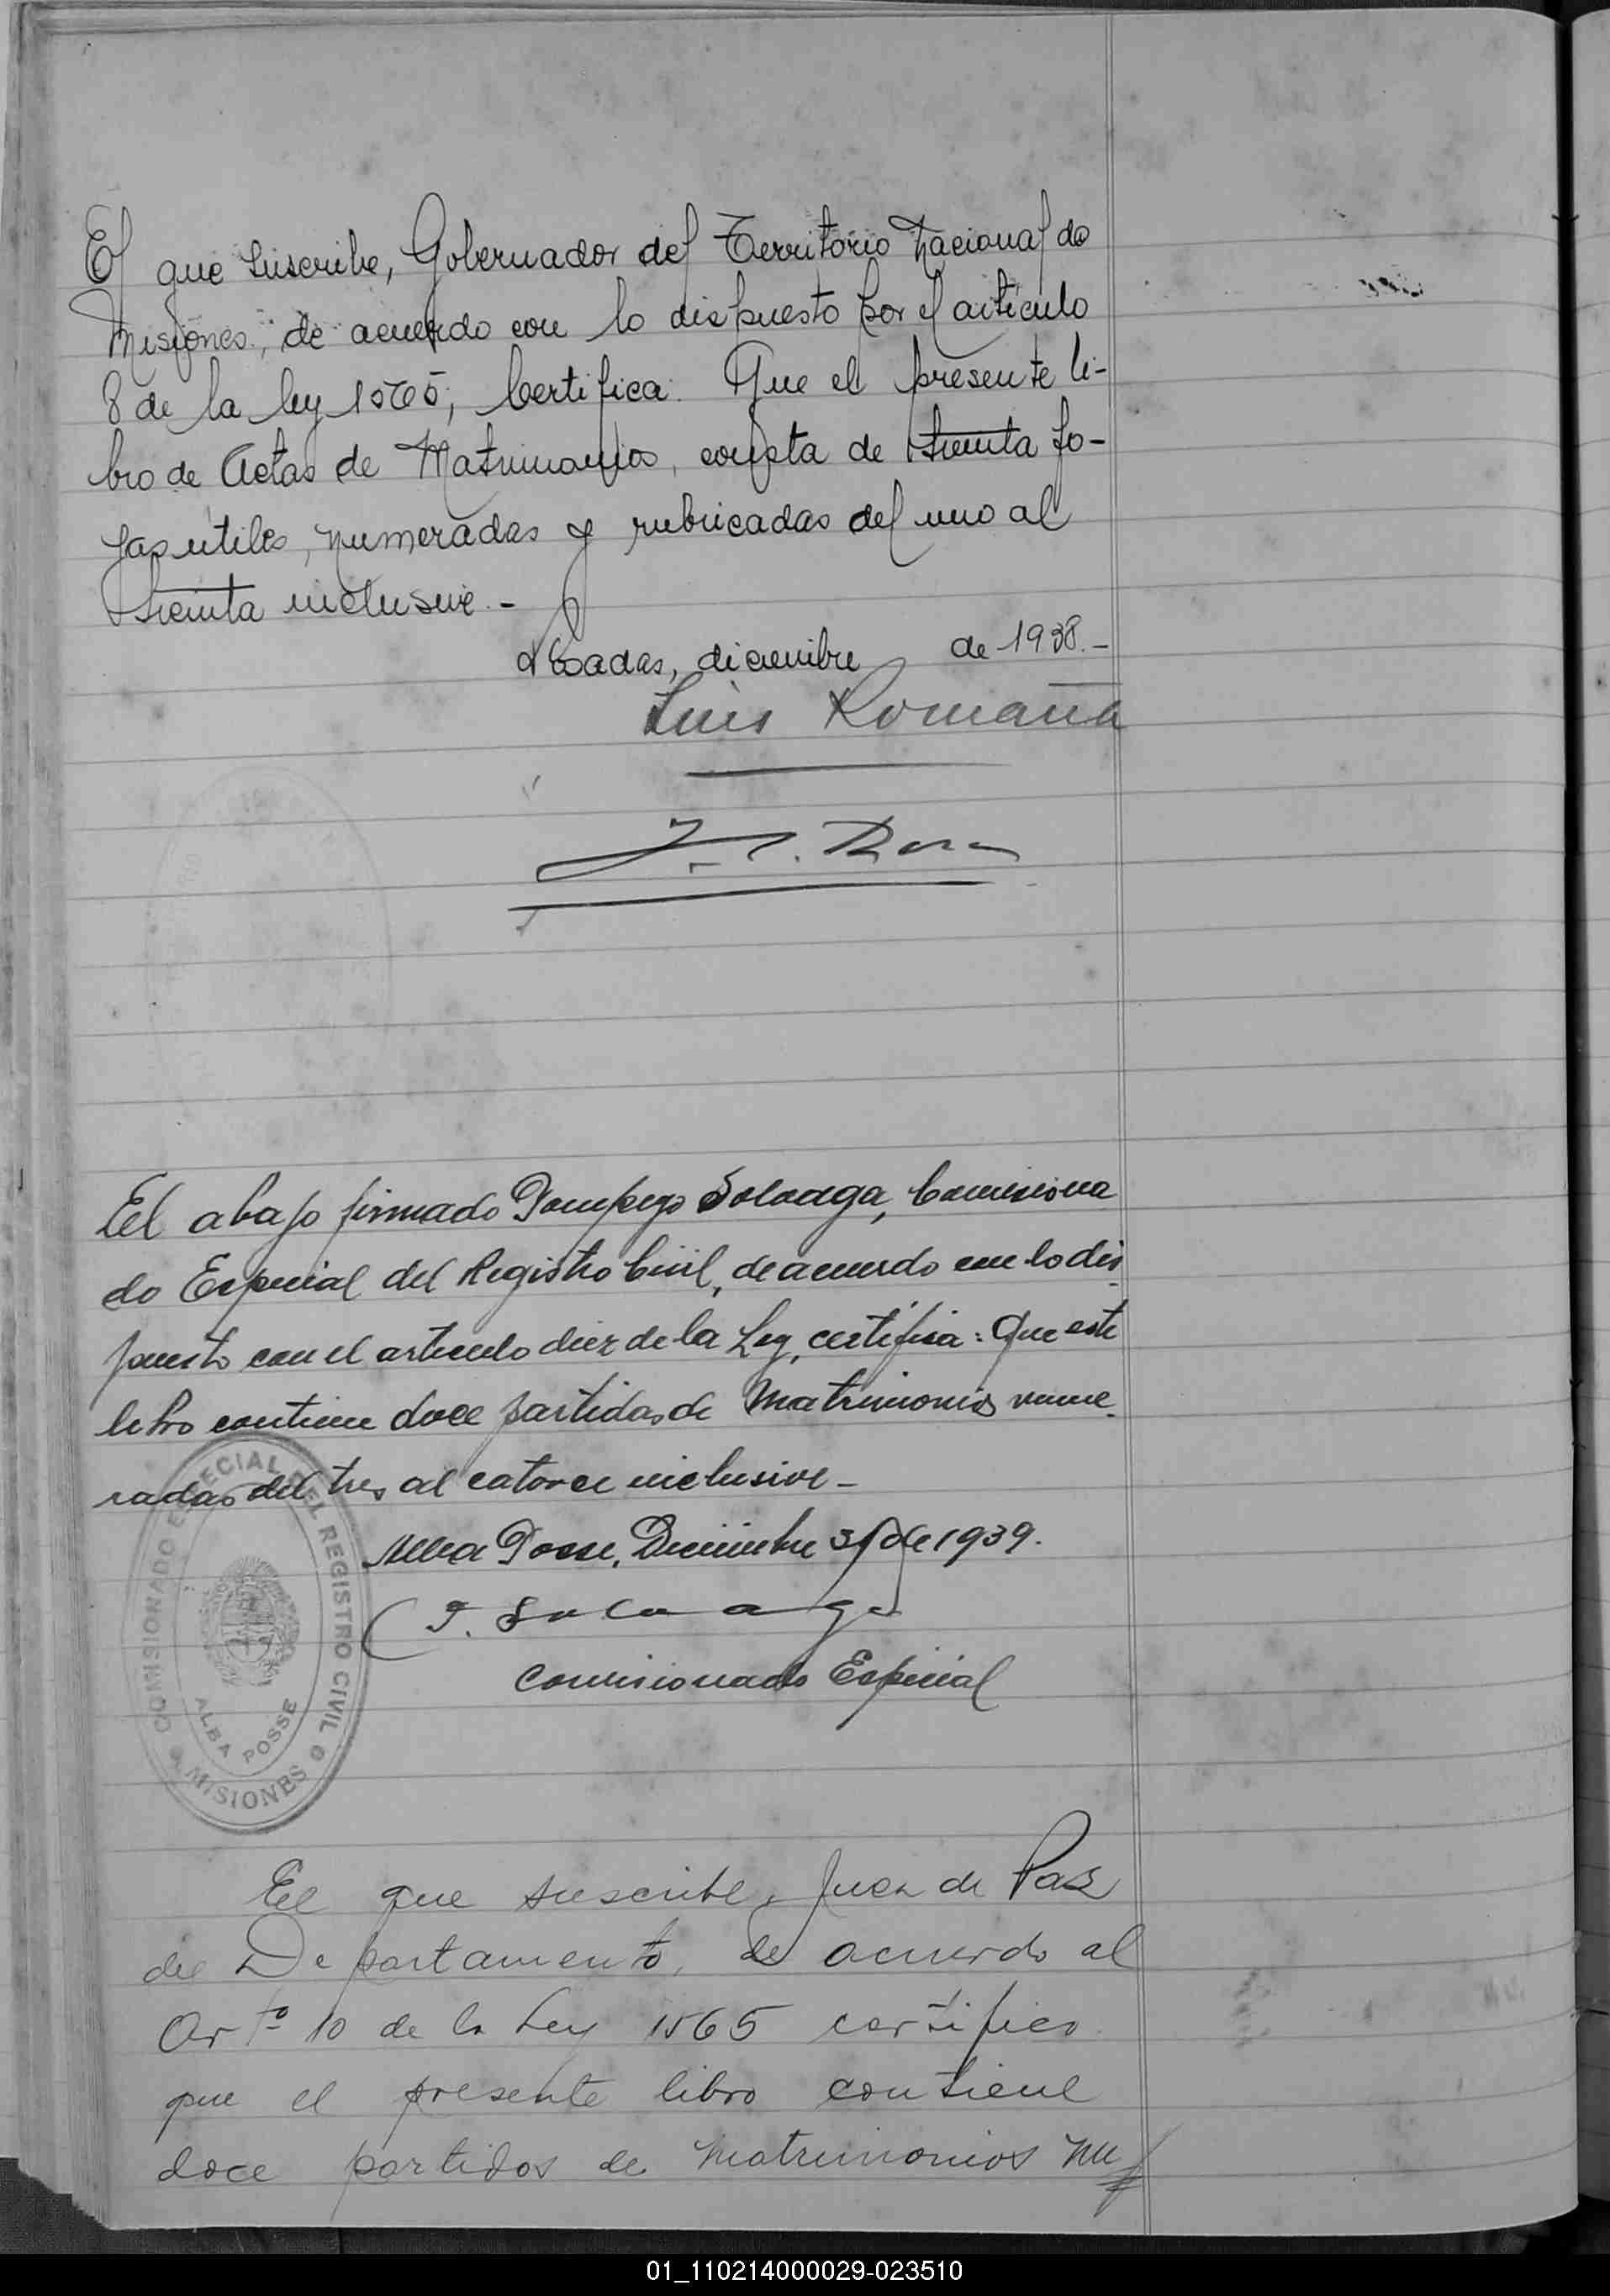 El que suscribe, Gobernador del Territorio Nacional de
Misiones, de acuerdo con lo dispuesto por el artículo
8 de la ley 1565, Certifica: Que el presente li-
bro de Actas de Matrimonios, consta de treinta fo-
jas utiles, numeradas y rubricadas del uno al
treinta inclusive.-
Posadas, diciembre de 1938.-
Luis Romaña
El abajo firmado Pompeyo Soloaga, Comisiona
do Especial del Registro Civil, de acuerdo con lo dis
puesto con el artículo diez de la Ley, certifica: Que este
libro contiene doce partidas de Matrimonios nume-
radas del tres al catorce inclusive-
Alba Posse, Diciembre 31 de 1939.
P. Soloaga
Comisionado Especial
COMISIONADO ESPECIAL DEL REGISTRO CIVIL
ALBA POSSE
MISIONES
El que suscribe, Juez de Paz
del Departamento, de acuerdo al
Art° 10 de la Ley 1565 certifico
que el presente libro contiene
doce partidas de Matrimonios nu
01_110214000029-023510